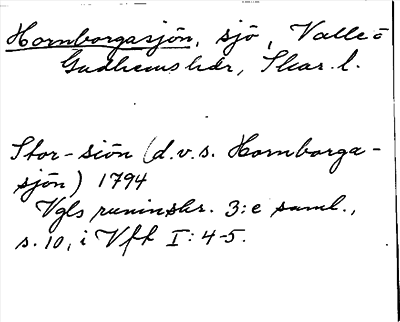 Hornborgasjön, sjö, Valle o
Gudhems hdr, Skar. l.
Stor-siön (d.v.s. Hornborga-
sjön) 1794
Vgls runinskr. 3:e saml.,
s. 10, i Vfft I: 4-5.